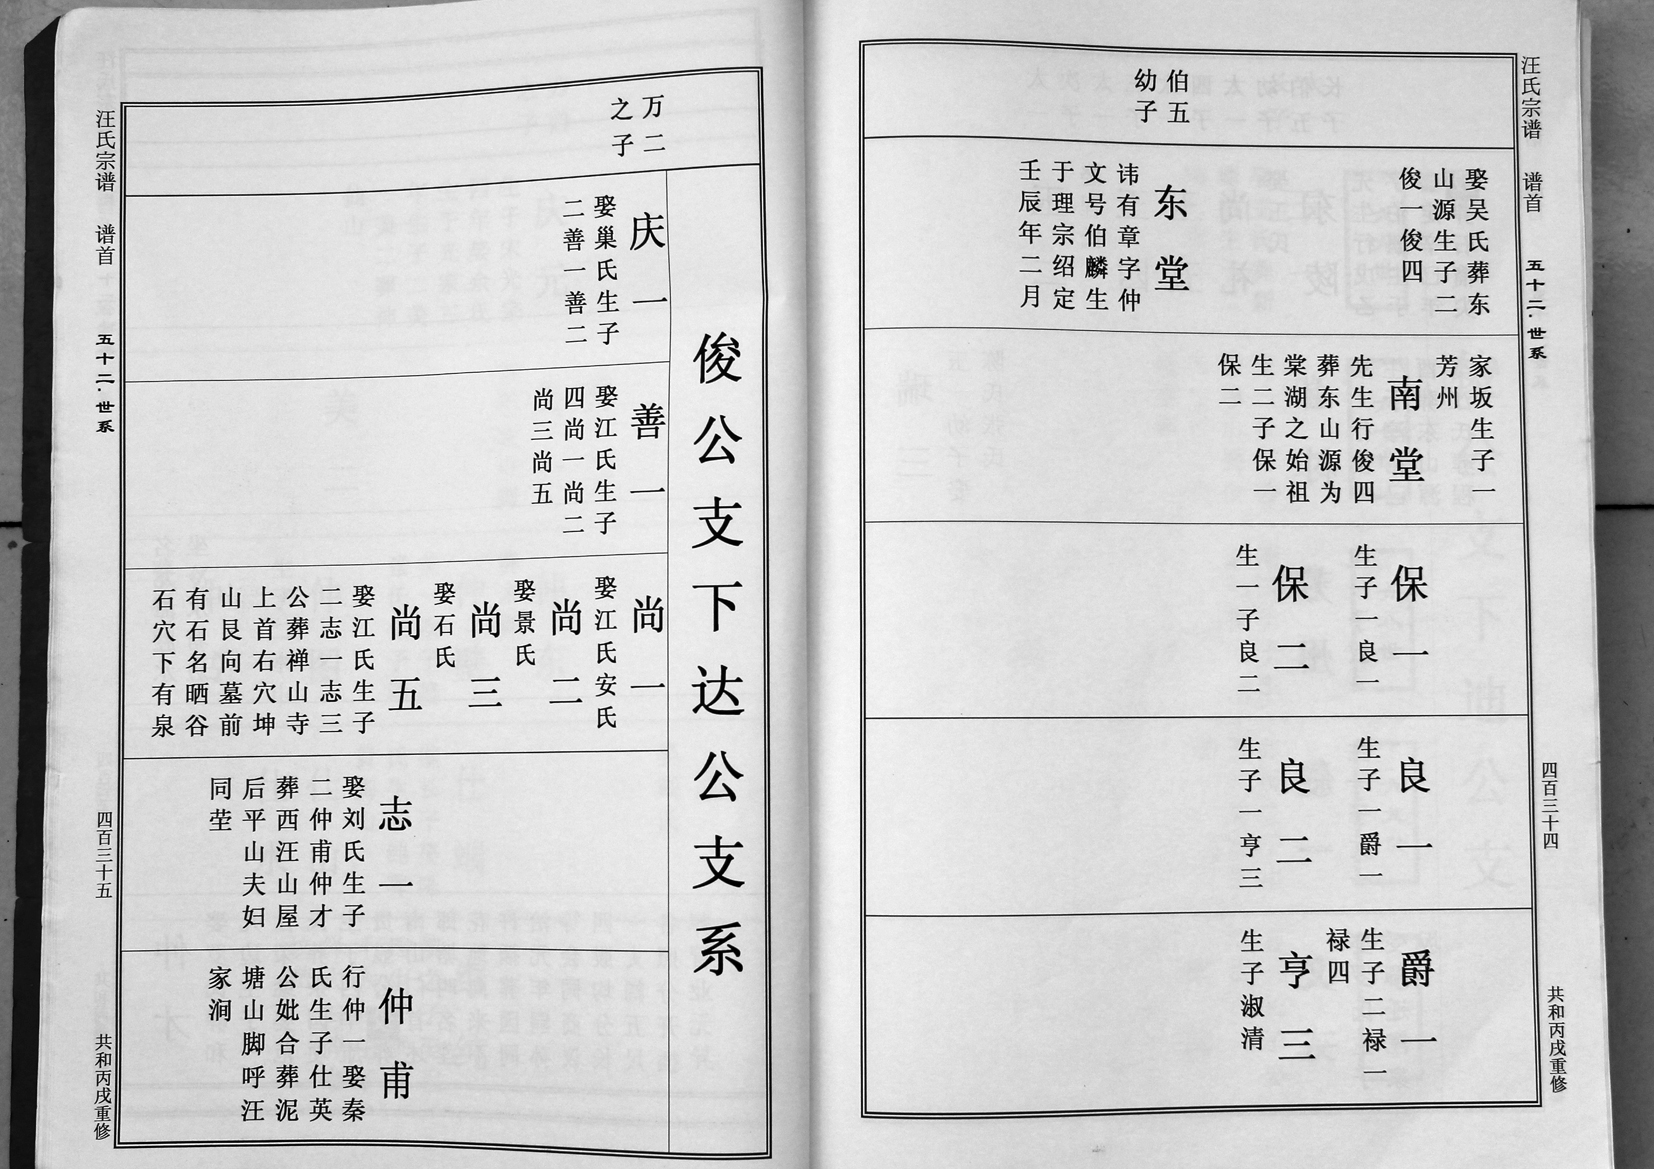 汪氏宗谱 谱首 五十二·世系 四百三十四 共和丙戌重修
伯五
幼子
娶吴氏葬东
山源生子二
俊一俊四
东堂
讳有章字仲
文号伯麟生
于理宗绍定
壬辰年二月
家坂生子一
芳州
南堂
先生行俊四
葬东山源为
棠湖之始祖
生二子保一
保二
保一
生子一良一
保二
生一子良二
良一
生子一爵一
良二
生子一亨三
爵一
生子二禄一
禄四
亨三
生子淑清
俊公支下达公支系
万二
之子
庆一
娶巢氏生子
二善一善二
善一
娶江氏生子
四尚一尚二
尚三尚五
尚一
娶江氏安氏
尚二
娶景氏
尚三
娶石氏
尚五
娶江氏生子
二志一志三
公葬禅山寺
上首右穴坤
山艮向墓前
有石名晒谷
石穴下有泉
志一
娶刘氏生子
二仲甫仲才
葬西汪山屋
后平山夫妇
同茔
仲甫
行仲一娶秦
氏生子仕英
公妣合葬泥
塘山脚呼汪
家涧
汪氏宗谱 谱首 五十二·世系 四百三十五 共和丙戌重修